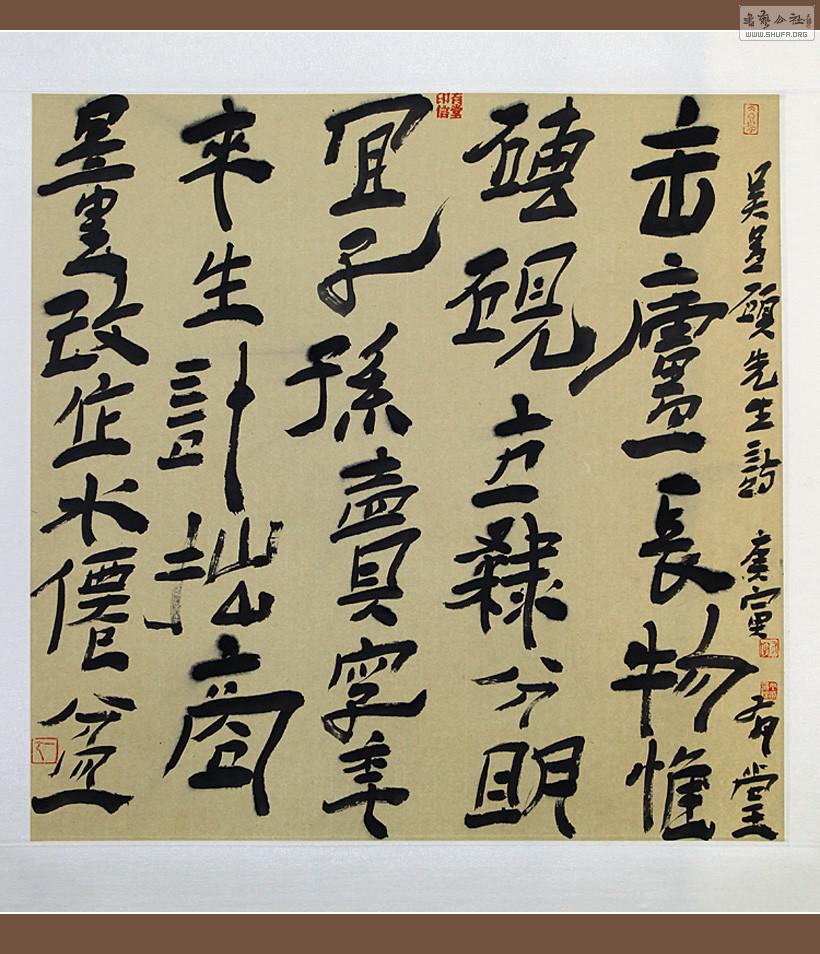 缶廬長物惟
磚硯古隸分明
宜子孫賣字年
來生計拙商
量改作水僊盆
吳昌碩先生詩 庚寅 有堂
有堂印信
書藝公社
WWW.SHUFA.ORG